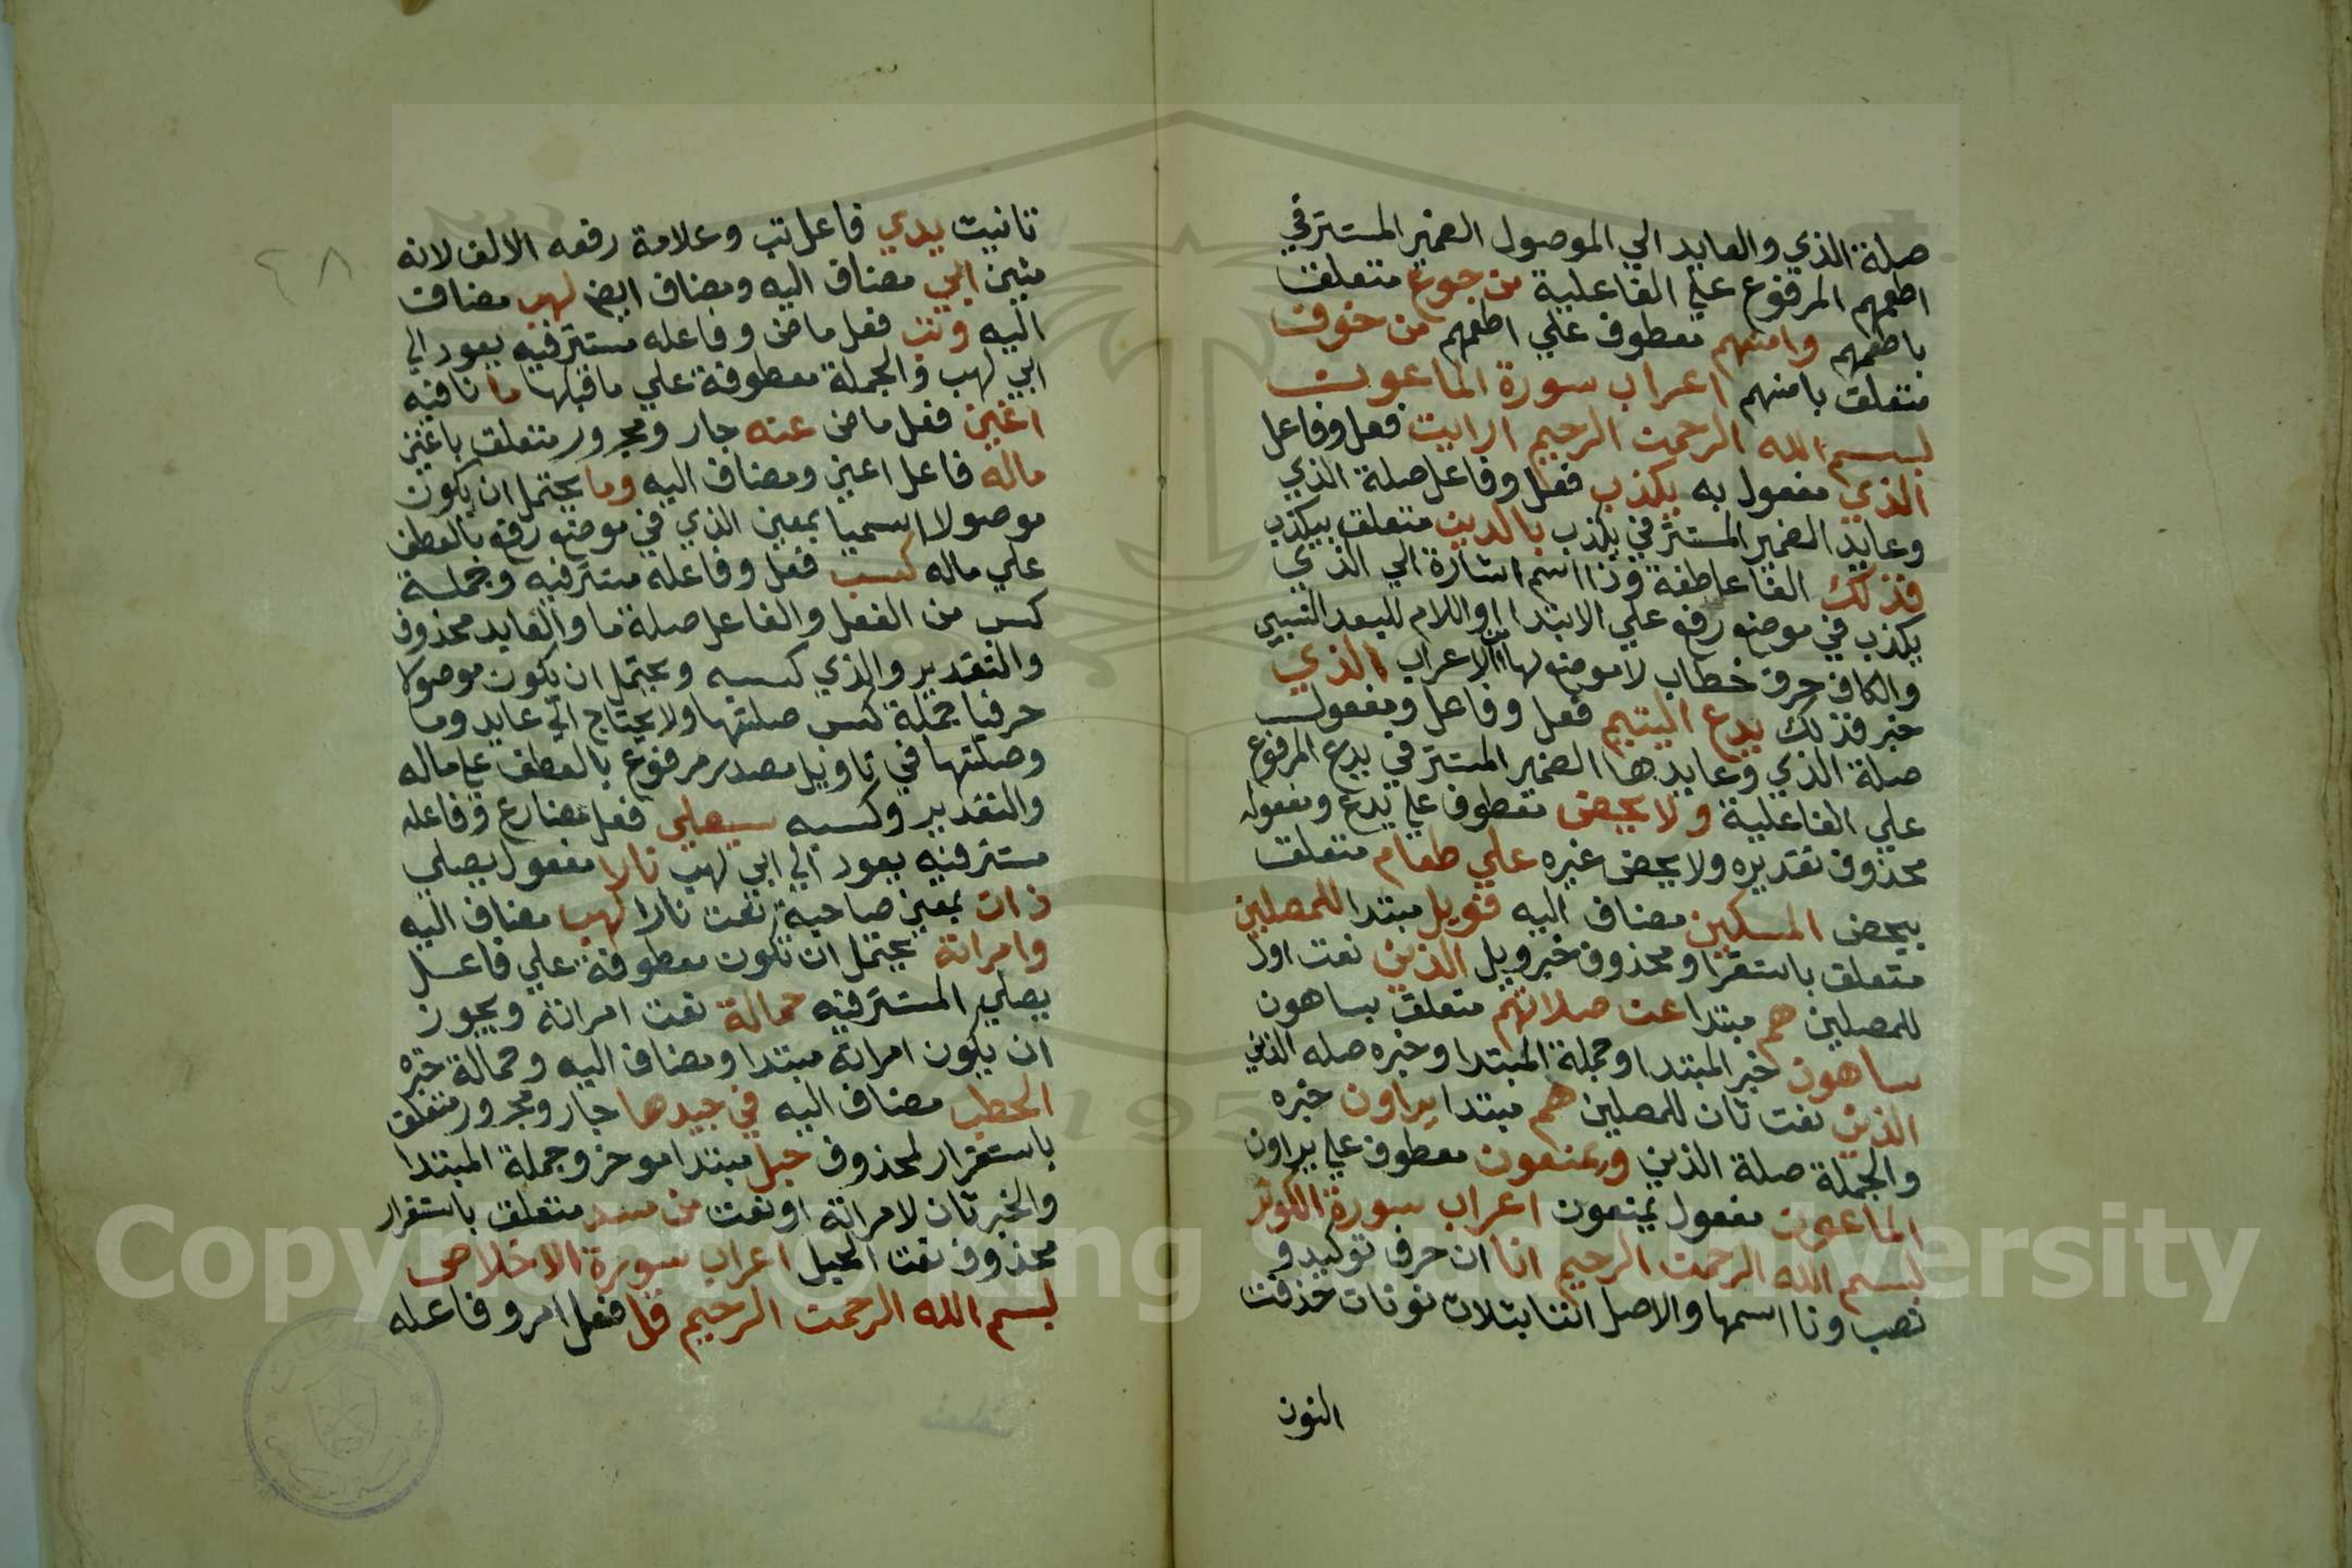 صلة الذي والعايد الي الموصول الضمير المستتر في
اطعمهم المرفوع علي الفاعلية من جوع متعلق
باطعمهم وامنهم معطوف علي اطعمهم من خوف
متعلق بامنهم اعراب سورة الماعون
بسم الله الرحمن الرحيم ارايت فعل وفاعل
الذي مفعول به يكذب فعل وفاعل صلة الذي
وعايد الضمير المستتر في يكذب بالدين متعلق بيكذب
فذلك الفا عاطفة وذا اسم اشارة الي الذي
يكذب في موضع رفع علي الابتدا واللام للبعد النسبي
والكاف حرف خطاب لا موضع لها من الاعراب الذي
خبر فذلك يدع اليتيم فعل وفاعل ومفعول
صلة الذي وعايدها الضمير المستتر في يدع المرفوع
علي الفاعلية ولا يحض معطوف علي يدع ومفعوله
محذوف تقديره ولا يحض غيره علي طعام متعلق
بيحض المسكين مضاف اليه فويل مبتدا للمصلين
متعلق باستقرا ومحذوف خبر ويل الذين نعت اول
للمصلين هم مبتدا عن صلاتهم متعلق بساهون
ساهون خبر المبتدا وجملة المبتدا وخبره صله الذين
الذين نعت ثان للمصلين هم مبتدا يراون خبره
والجملة صلة الذين ويمنعون معطوف علي يراون
الماعون مفعول يمنعون اعراب سورة الكوثر
بسم الله الرحمن الرحيم انا ان حرف توكيد و
نصب ونا اسمها والاصل اننا بثلاث نونات حذفت
النون
٢٨
تانيث يدي فاعل تب وعلامة رفعه الالف لانه
مثين ابي مضاف اليه ومضاف ايض لهب مضاف
اليه وتب فعل ماض وفاعله مستتر فيه يعود الي
ابي لهب والجملة معطوفة علي ما قبلها ما نافيه
اغني فعل ماض عنه جار ومجرور متعلق باغني
ماله فاعل اغني ومضاف اليه وما يحتمل ان يكون
موصولا اسميا بمعني الذي في موضع رفع بالعطف
علي ماله كسب فعل وفاعله مستتر فيه وجملة
كسب من الفعل والفاعل صلة ما والعايد محذوف
والتقدير والذي كسبه ويحتمل ان يكون موصولا
حرفيا جملة كسب صلتها ولا يحتاج الي عايد وما
وصلتها في تاويل مصدر مرفوع بالعطف علي ماله
والتقدير وكسبه سيصلي فعل مضارع وفاعله
مستتر فيه يعود الي ابي لهب نارا مفعول يصلي
ذات بمعني صاحبة نعت نارا لهب مضاف اليه
وامراته يحتمل ان تكون معطوفة علي فاعل
يصلي المستتر فيه حمالة نعت امراته ويجوز
ان يكون امراته مبتدا ومضاف اليه وحمالة خبره
الحطب مضاف اليه في جيدها جار ومجرور متعلق
باستقرار لمحذوف حبل مبتدا موخر وجملة المبتدا
والخبر ثان لامراته او نعت من مسد متعلق باستقرار
محذوف نعت الحبل اعراب سورة الاخلاص
بسم الله الرحمن الرحيم قل فعل امر وفاعله
Copyright © King Saud University
1957